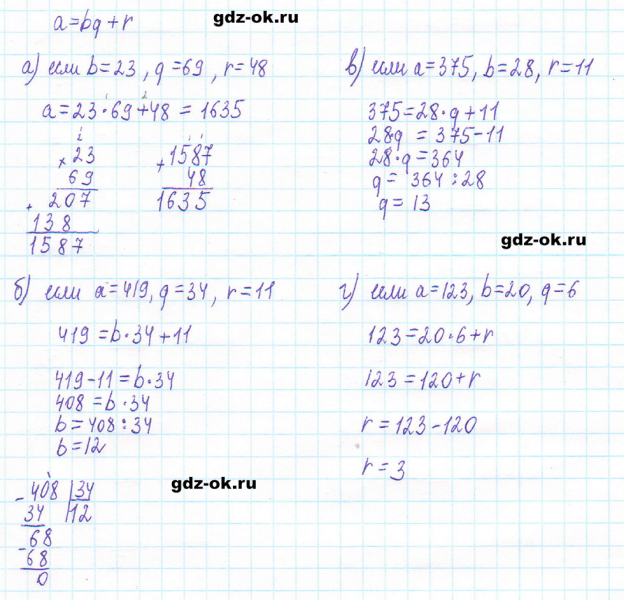 gdz-ok.ru
a=bq+r
а) если b=23, q=69, r=48
1 2
a=23·69+48 = 1635
2
× 23
69
+ 207
138
1587
1 1
+ 1587
48
1635
в) если a=375, b=28, r=11
375=28·q+11
28·q = 375-11
28·q=364
q= 364:28
q= 13
gdz-ok.ru
б) если a=419, q=34, r=11
419=b·34+11
419-11=b·34
408=b·34
b=408:34
b=12
- 408 |34
34 |12
- 68
68
0
gdz-ok.ru
г) если a=123, b=20, q=6
123=20·6+r
123=120+r
r=123-120
r=3